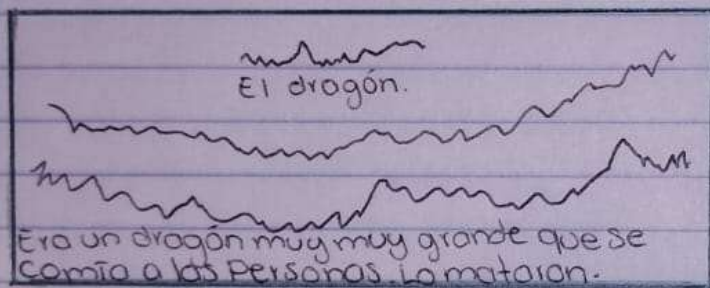 El dragón.
Era un dragón muy muy grande que se
comía a las personas. Lo mataron.